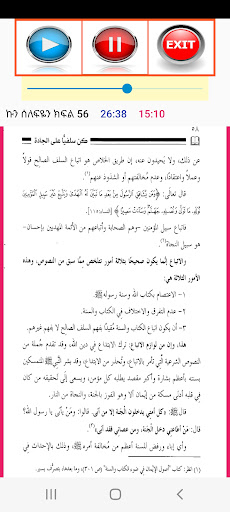 EXIT
ኩን ሰለፍዬን ክፍል 56 26:38 15:10
٥٨ كن سلفيًّا على الجادة
عن ذلك، ولا يحيدون عنه، إن طريق الخلاص هو اتباع السلف الصالح قولًا
وعملًا واعتقادًا، وعدم مخالفتهم أو الشذوذ عنهم
قال تعالى: ﴿وَمَن يُشَاقِقِ الرَّسُولَ مِن بَعْدِ مَا تَبَيَّنَ لَهُ الْهُدَىٰ وَيَتَّبِعْ غَيْرَ سَبِيلِ الْمُؤْمِنِينَ
نُوَلِّهِ مَا تَوَلَّىٰ وَنُصْلِهِ جَهَنَّمَ وَسَاءَتْ مَصِيرًا﴾ [النساء: ١١٥].
فسبيل المؤمنين -وهم الصحابة وأتباعهم من الأئمة المهديين بإحسان-
هو سبيل النجاة
والاتباع إنما يكون صحيحًا بثلاثة أمور تتلخص مما سبق من النصوص، وهذه الأمور
الثلاثة هي:
١- الاعتصام بكتاب الله وسنة رسوله ﷺ.
٢- عدم التفرق والاختلاف في الكتاب والسنة.
٣- أن يكون اتباع الكتاب والسنة مقيدًا بفهم السلف الصالح لا بفهم غيرهم.
هذا، وإن من لوازم الاتباع: ترك الابتداع في دين الله، وقد تقدم جملة من
النصوص الشرعية التي تأمر بالاتباع، وتحذر من الابتداع، وقد بشر النبي ﷺ المتمسكين
بسنته أعظم بشارة وأكبر مقصد يطلبه كل مؤمن، ويسعى إلى تحقيقه من كان
في قلبه أدنى مسكة من إيمان ألا وهو الفوز بالجنة، والنجاة من النار.
قال ﷺ: «كل أمتي يدخلون الجنة إلا من أبى. قالوا: ومن يأبى يا رسول الله؟
قال: من أطاعني دخل الجنة، ومن عصاني فقد أبى»
وأي إباء ورفض للسنة أعظم من مخالفة أمره ﷺ، وذلك بالإحداث في
(١) انظر: كتاب «أصول الإيمان في ضوء الكتاب والسنة» (ص ٣٠١)، وما بعدها، بتصرف يسير.